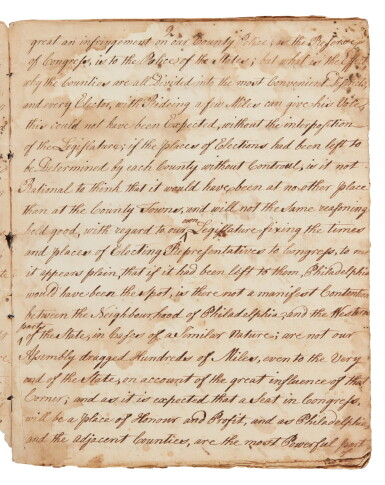 great an infringement on our County Police, as the Reserve
of Congress, is to the Police of the States; but what is the Effect
why the Counties are all Divided into the most Convenient Districts,
and every Elector, with Rideing a few Miles can give his Vote,
this could not have been Expected, without the interposition
of the Legislature; if the places of Elections had been left to
be Determined by each County without Controul, is it not
Rational to think that it would have been at no other place
than at the County Towns, and will not the same reasoning
hold good, with regard to our own Legislature fixing the times
and places of Electing Representatives to Congress, to me
it appears plain, that if it had been left to them, Philadelphia
would have been the Spot, is there not a manifest Contention
between the Neighbourhood of Philadelphia and the Western
parts
of the State, in Cases of a Similar Nature; are not our
Assembly dragged Hundreds of Miles, even to the Very
end of the State, on account of the great influence of that
Corner; and as it is expected that a Seat in Congress,
will be a place of Honour and Profit, and as Philadelphia
and the adjacent Counties, are the most Powerful part